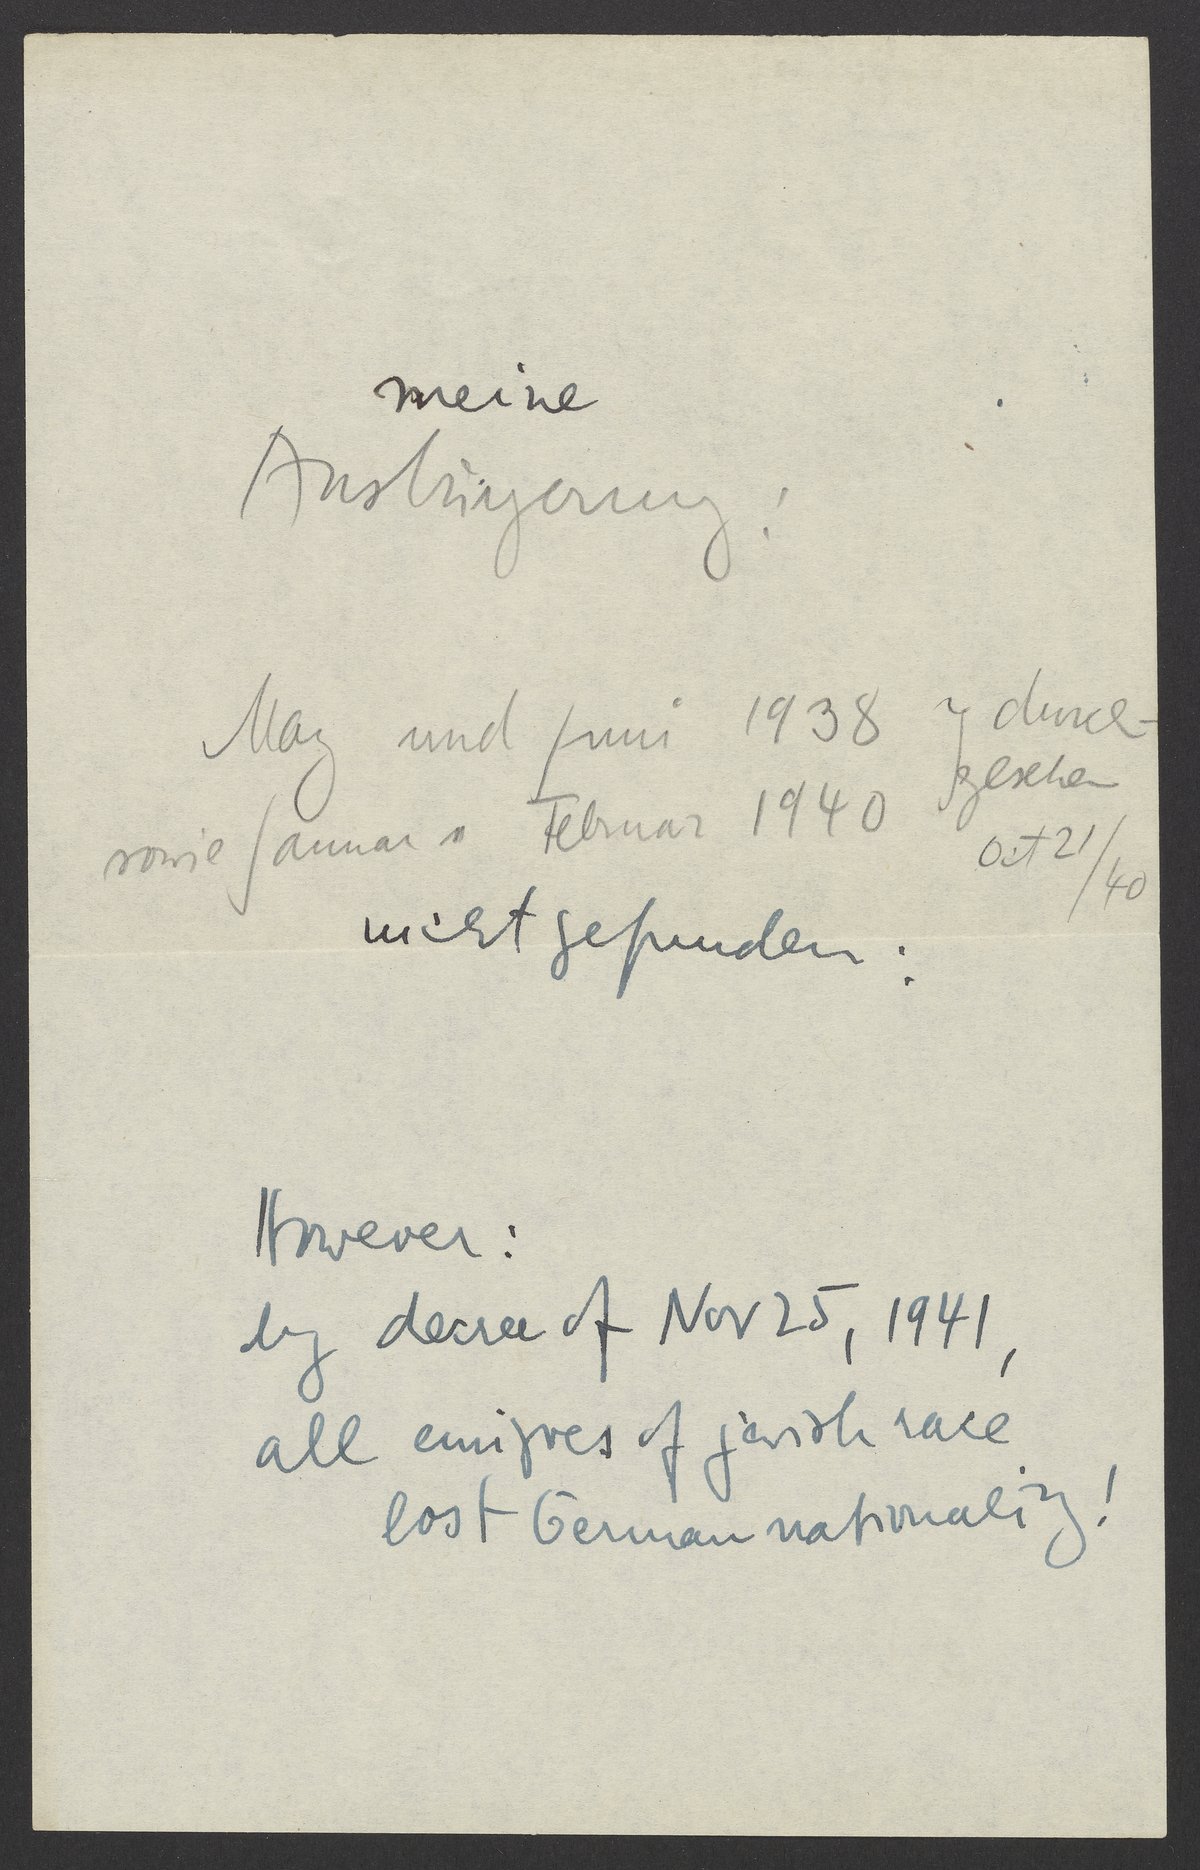 meine
Ausbürgerung!
May und Juni 1938 durch-
gesehen
sowie Januar u Februar 1940
Oct 21/40
nicht gefunden:
However:
by decree of Nov 25, 1941,
all emigres of jewish race
lost German nationality!